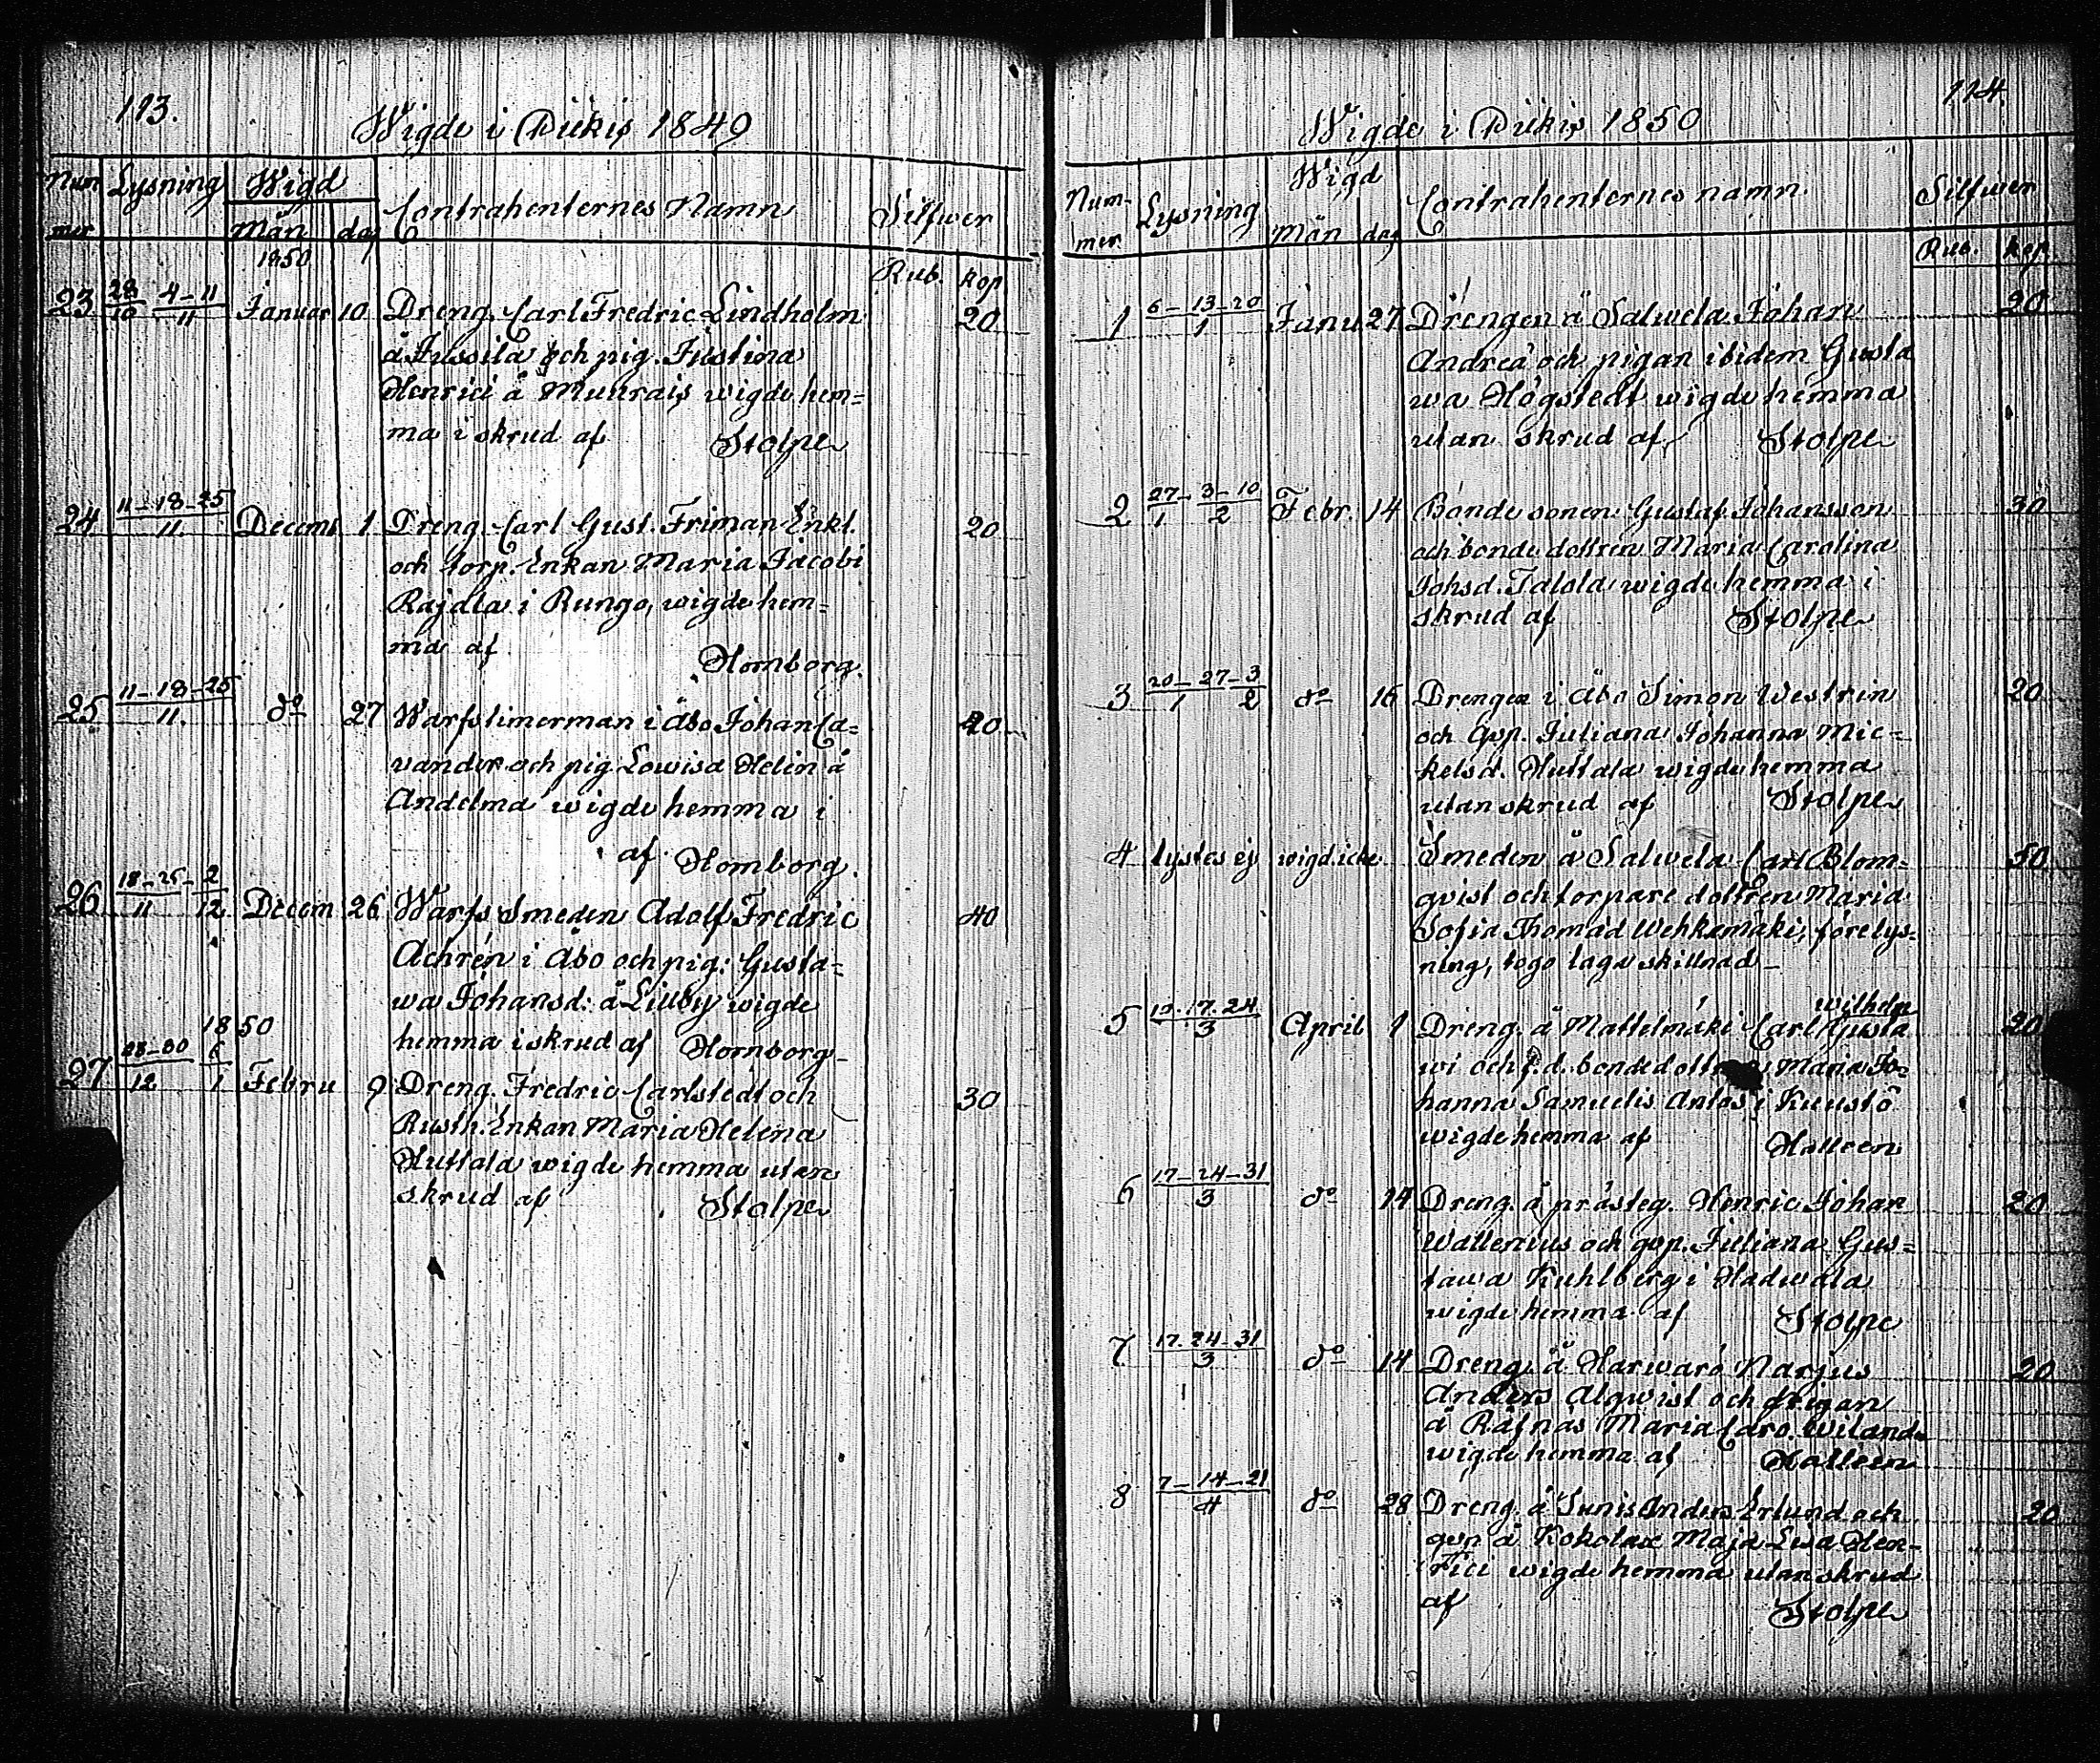 113.
Wigde i Piikis 1849
Num Lysning Wigd Contrahenternes Namn Silfwer
mer Mån dag
1850 Rub. kop
23 28/10 4-11/11 Januar 10 Dreng. Carl Fredric Lindholm 20
å Jussila och pig. Justina
Henrici å Muurais wigde hem=
ma i skrud af Stolpe
24 11-18-25/11 Decemb 1 Dreng. Carl Gust. Friman Enkl. 20
och torp. Enkan Maria Jacobi
Rajala i Runga, wigde hem=
ma af Hornborg.
25 11-18-25/11 do 27 Warfstimerman i Åbo Johan Ca= 20
vander och pig Lowisa Helin å
Andelma wigde hemma i
af Hornborg.
26 18-25-/11 2/12 Decem 26 Warfs Smeden Adolf Fredric 40
Achrén i Åbo och pig: Gusta=
wa Johansd: å Lillby wigde
hemma i skrud af Hornborg
1850
27 23-30/12 6/1 Febru 9 Dreng. Fredric Carlstedt och 30
Rusth. Enkan Maria Helena
Huttala wigde hemma utan
skrud af Stolpe
114.
Wigde i Piikis 1850
Num- Lysning Wigd Contrahenternes namn Silfwer
mer Mån dag Rub. kop.
1 6-13-20/1 Janu 27 Drengen å Salwela Johan 20
Andreä och pigan ibidem Gusta
wa Högstedt wigde hemma
utan skrud af Stolpe
2 27-/1 3-10/2 Febr. 14 Bonde sonen Gustaf Johansson 30
och bonde dottren Maria Carolina
Johsd. Talola wigde hemma i
skrud af Stolpe
3 20-27-/1 3/2 do 16 Drengen i Åbo Simon Westrin 20
och qvp. Juliana Johanna Mic=
kelsd. Huttala wigde hemma
utan skrud af Stolpe
4 lystes ej wigd icke Smeden å Salwela Carl Blom= 50
qvist och torpare dottren Maria
Sofia Thomad Wehkamäki, före lys=
ning, togo laga skillnad
wilhelm
5 10.17.24/3 April 1 Dreng. å Mattelmäki Carl Gusta 20
wi och f.d. bonde Maria Jo=
hanna Samuelis Antas i Kuustö
wigde hemma af Halleen
6 17-24-31/3 do 14 Dreng. å prästeg. Henric Johan 20
Wallenius och qvp. Juliana Gus=
tawa Kuhlberg i Hadwala
wigde hemma af Stolpe
7 17.24-31/3 do 14 Dreng. å Harwarö Narjus 20
Anders Alqwist och pigan
å Räfnäs Maria Caro. Wilande
wigde hemma af Halleen
8 7-14-21/4 do 28 Dreng. å Sunis Anders Erlund och 20
qvp å Kokolax Maja Lisa Hen=
rici wigde hemma utan skrud
af Stolpe